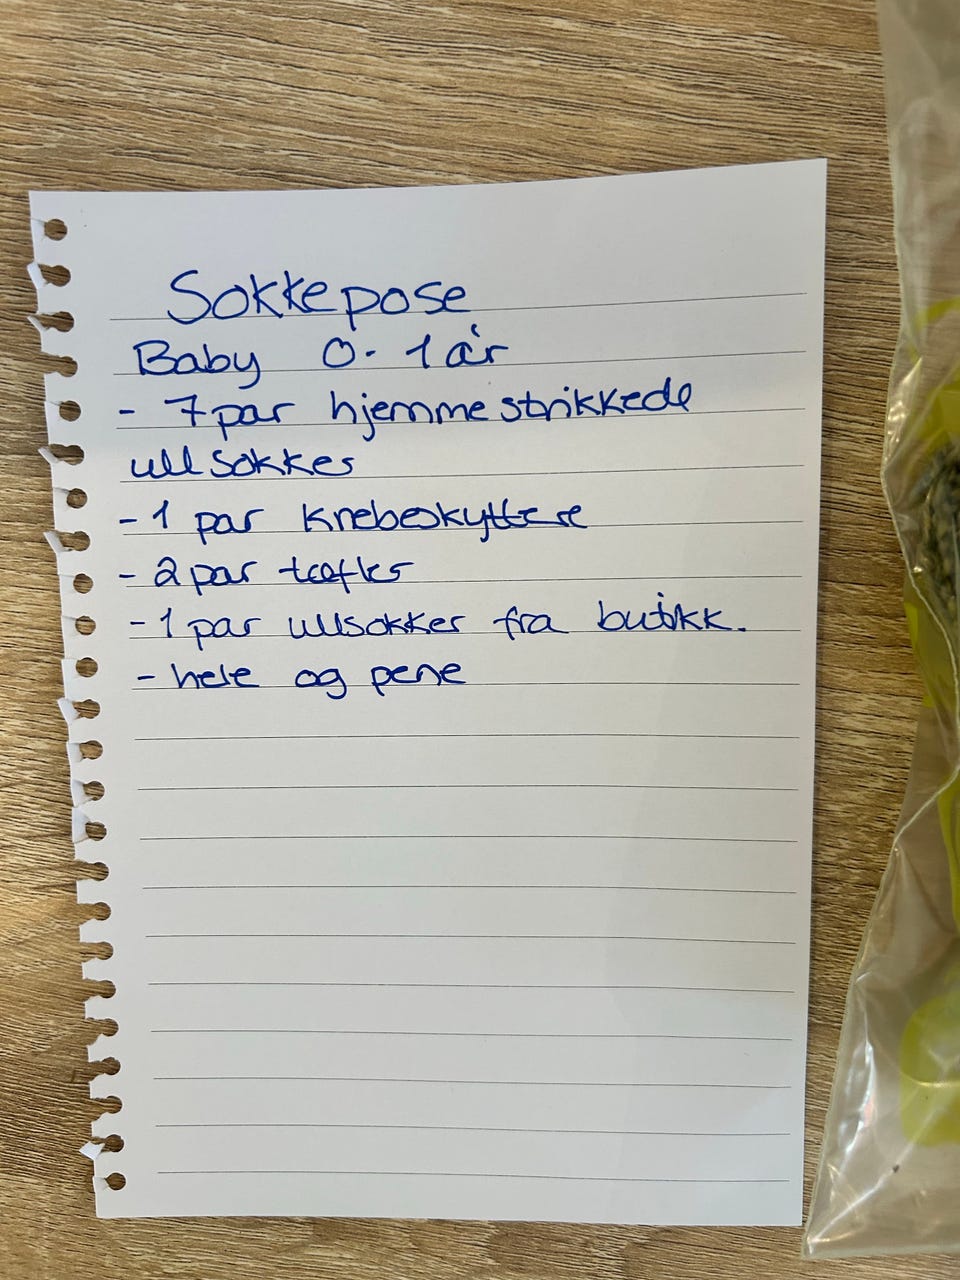 Sokkepose
Baby 0-1 år
- 7 par hjemmestrikkede
ullsokker
- 1 par knebeskyttere
- 2 par tøfler
- 1 par ullsokker fra butikk.
- hele og pene